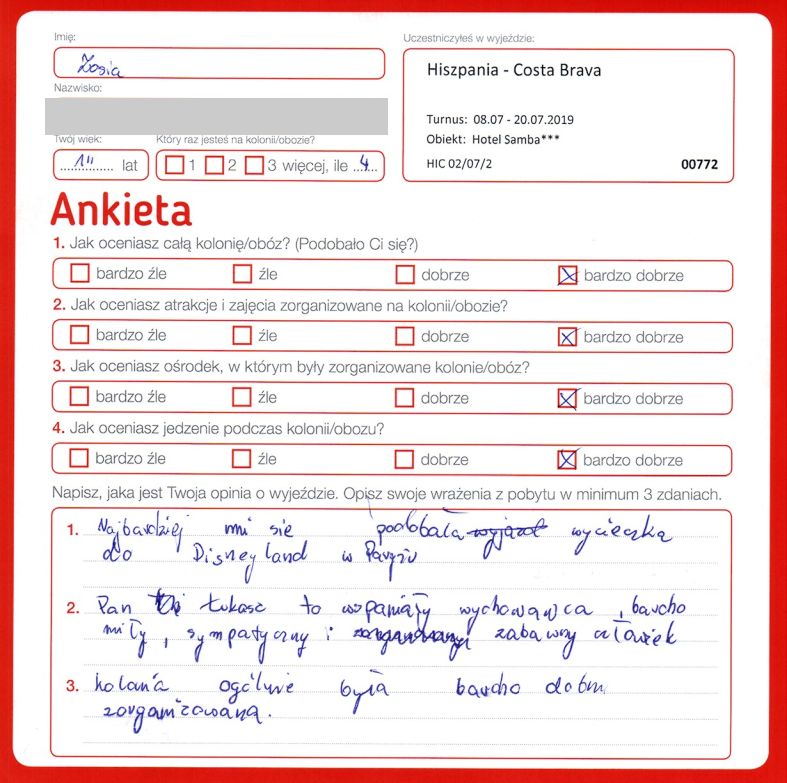 Imię:
Zosia
Nazwisko:
Twój wiek:
11 lat
Który raz jesteś na kolonii/obozie?
1 2 3 więcej, ile 4
Uczestniczyłeś w wyjeździe:
Hiszpania - Costa Brava
Turnus: 08.07 - 20.07.2019
Obiekt: Hotel Samba***
HIC 02/07/2 00772
Ankieta
1. Jak oceniasz całą kolonię/obóz? (Podobało Ci się?)
bardzo źle źle dobrze bardzo dobrze
2. Jak oceniasz atrakcje i zajęcia zorganizowane na kolonii/obozie?
bardzo źle źle dobrze bardzo dobrze
3. Jak oceniasz ośrodek, w którym były zorganizowane kolonie/obóz?
bardzo źle źle dobrze bardzo dobrze
4. Jak oceniasz jedzenie podczas kolonii/obozu?
bardzo źle źle dobrze bardzo dobrze
Napisz, jaka jest Twoja opinia o wyjeździe. Opisz swoje wrażenia z pobytu w minimum 3 zdaniach.
1. Najbardziej mi sie podobała wyjazd wycieczka
do Disneyland w Paryżu
2. Pan Łukasz to wspaniały wychowawca, bardzo
miły, sympatyczny i zabawny człowiek
3. kolonia ogólnie była bardzo dobrze
zorganizowana.